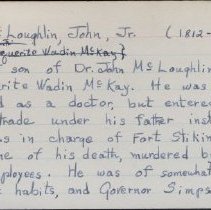 Loughlin, John, Jr. (1812-
guerite Wadin McKay}
son of Dr. John McLoughlin
rite Wadin McKay. He was
d as a doctor, but entere
trade under his father inst
s in charge of Fort Stikin
ne of his death, murdered b
ployees. He was of somewha
habits, and Governor Simps